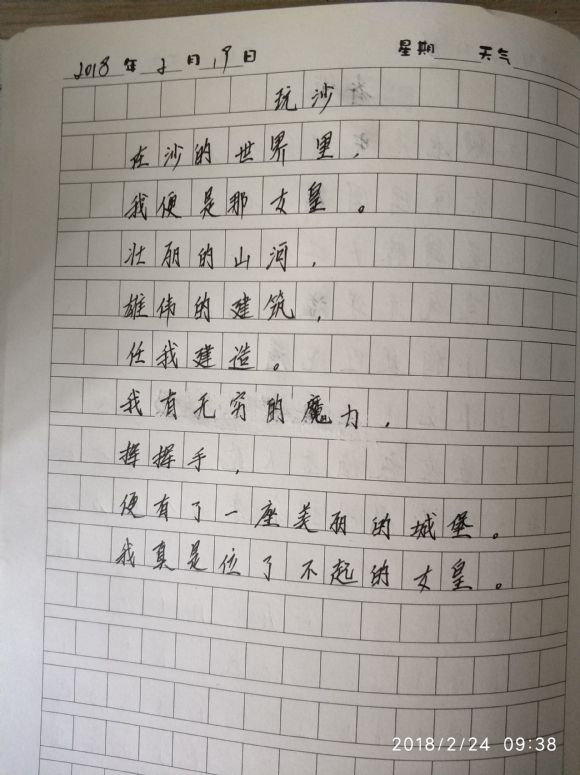 2018年2月19日 星期 天气
玩沙
在沙的世界里，
我便是那女皇。
壮丽的山河，
雄伟的建筑，
任我建造。
我有无穷的魔力，
挥挥手，
便有了一座美丽的城堡。
我真是位了不起的女皇。
2018/2/24 09:38